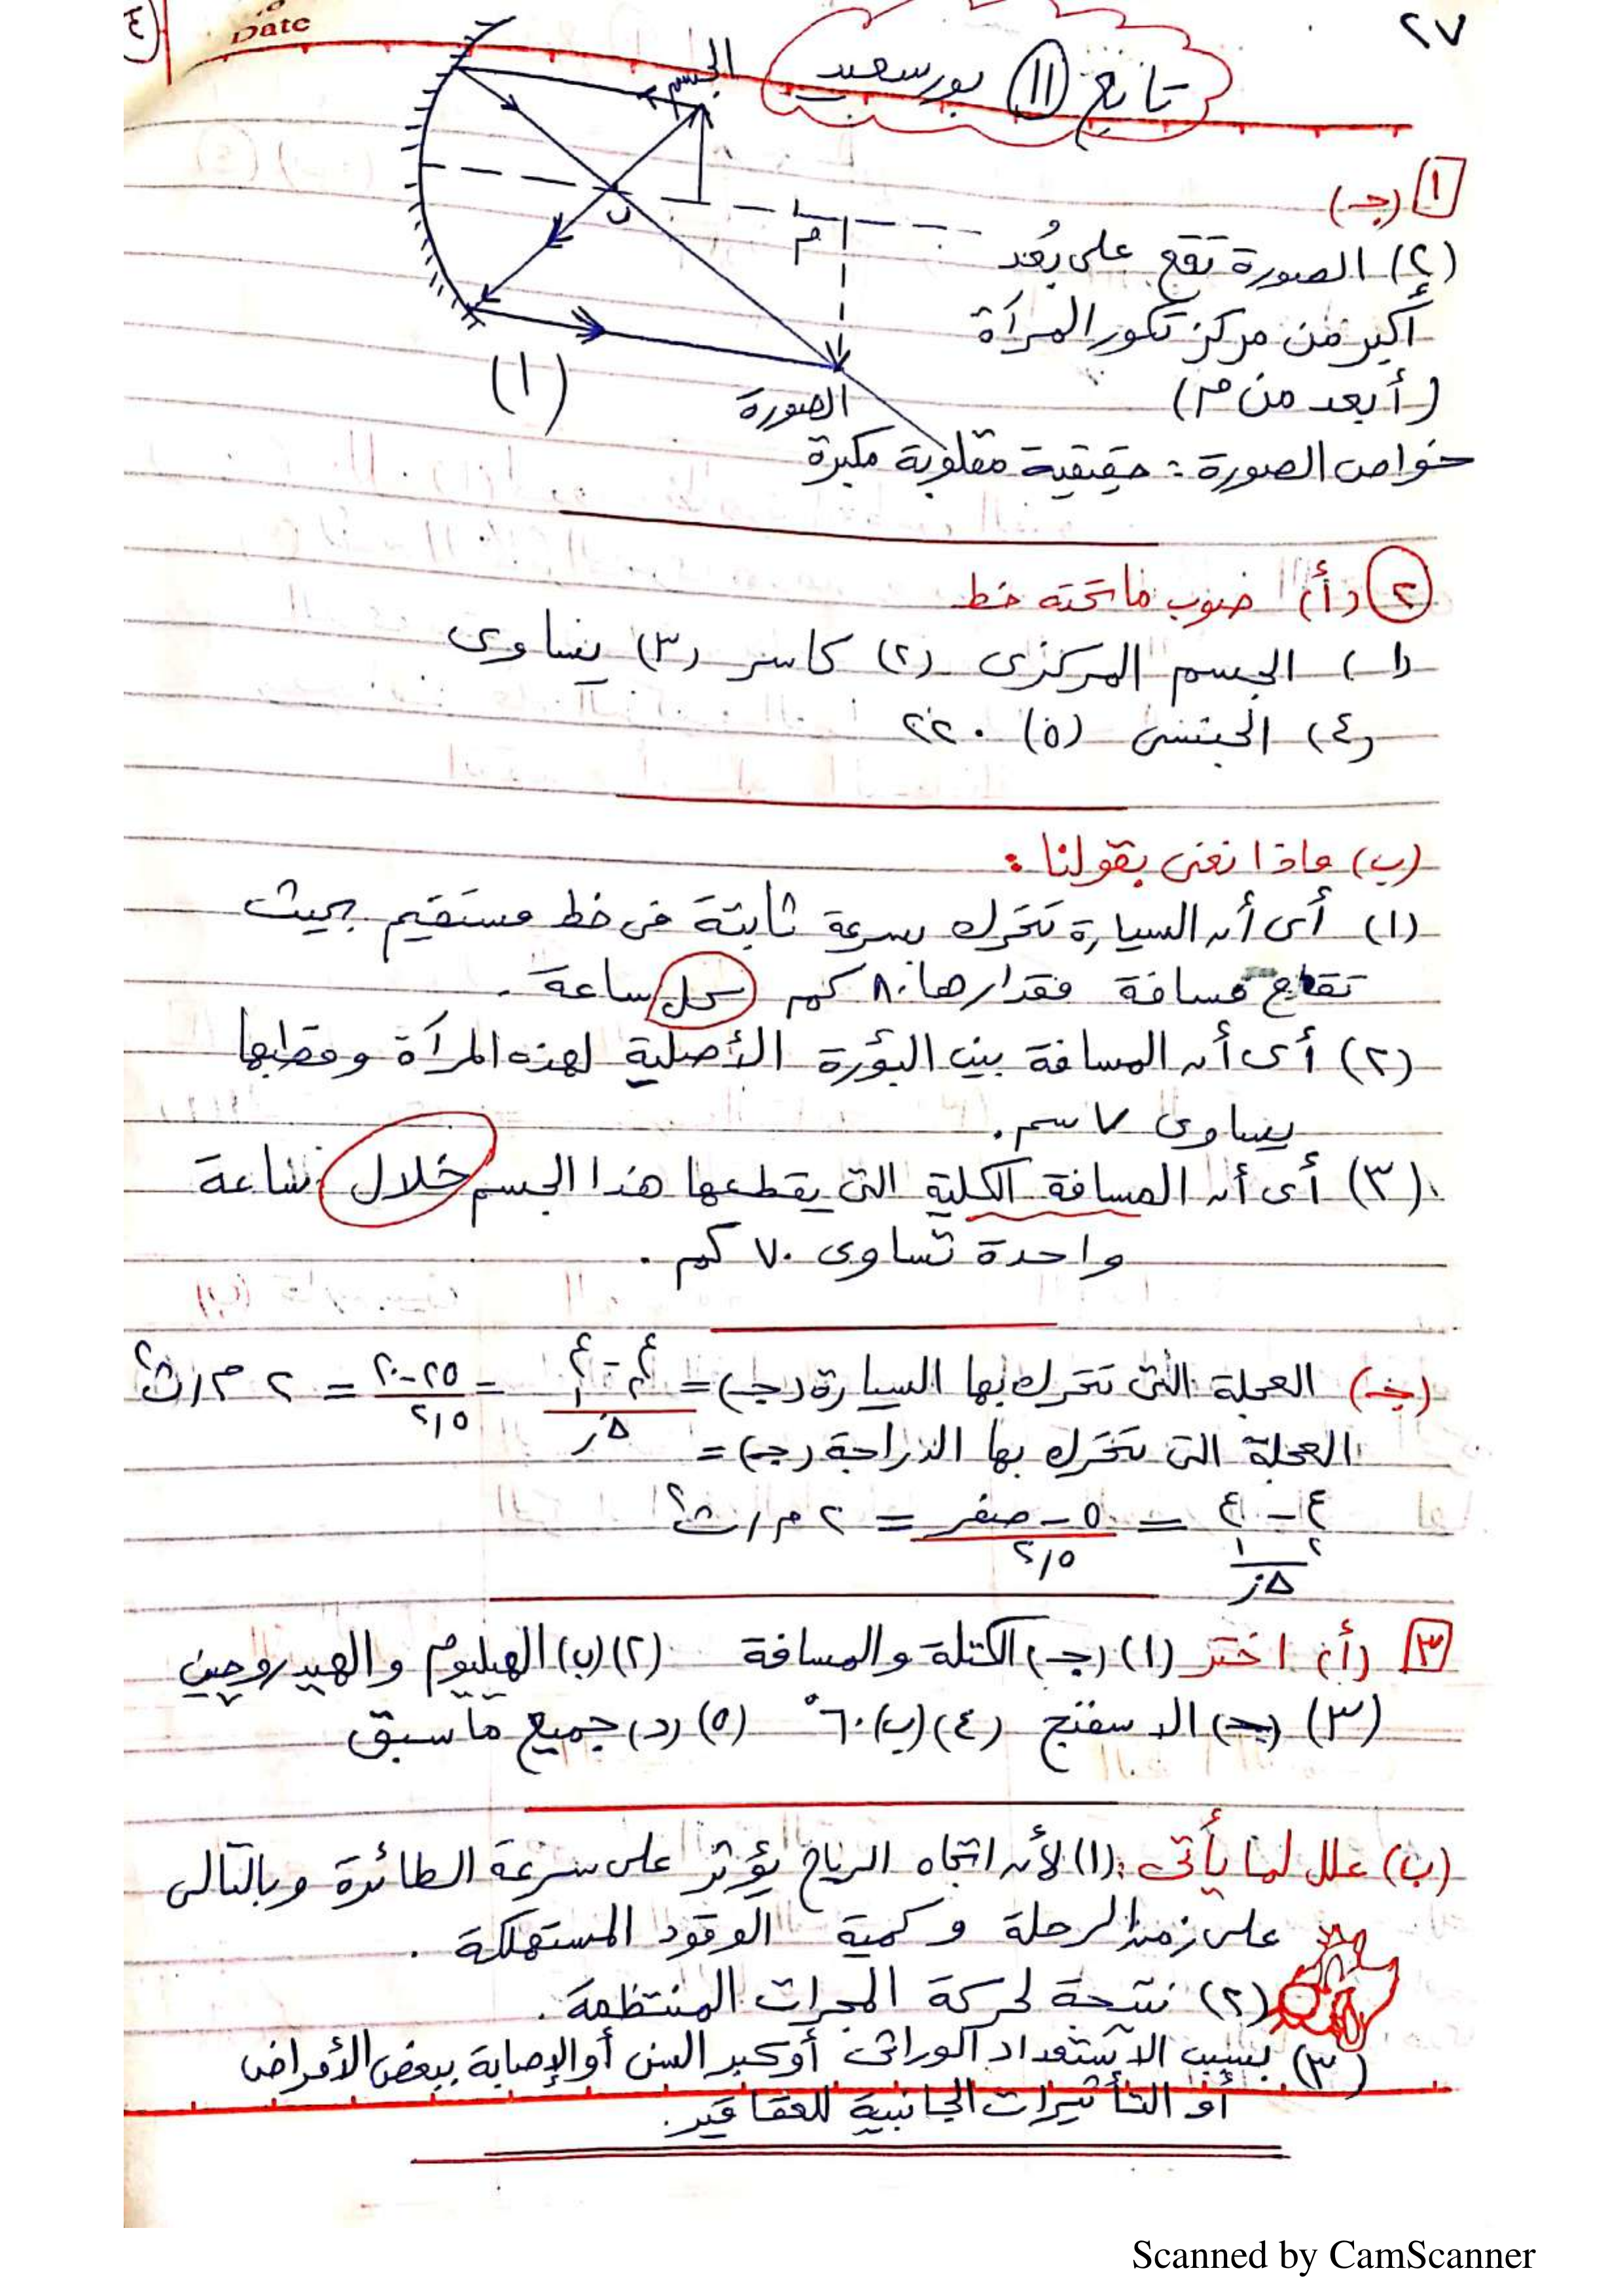 ٢٧
Date
تابع (١١) بورسعيد
١ (جـ)
الجسم
(٢) الصورة تقع على بُعد
أكبر من مركز تكور المرآة
(أبعد من م)
ب
م
(١)
الصورة
خواص الصورة : حقيقية مقلوبة مكبرة
٢ (أ) صوب ما تحته خط
(١) الجسم المركزى (٢) كاسر (٣) يساوى
(٤) الجنسى (٥) ٢٢٠
(ب) ماذا نعنى بقولنا :
(١) أى أن السيارة تتحرك بسرعة ثابتة فى خط مستقيم بحيث
تقطع مسافة مقدارها ٨٠ كم كل ساعة .
(٢) أى أن المسافة بين البؤرة الأصلية لهذه المرآة وقطبها
يساوى ٧ سم .
(٣) أى أن المسافة الكلية التى يقطعها هذا الجسم خلال ساعة
واحدة تساوى ٧٠ كم .
(جـ) العجلة التى تتحرك بها السيارة (جـ) = ع٢ - ع١ / Δز = ٢٥ - ٢٠ / ٢,٥ = ٢ م/ث٢
العجلة التى تتحرك بها الدراجة (جـ) =
ع٢ - ع١ / Δز = ٥ - صفر / ٢,٥ = ٢ م/ث٢
٣ (أ) اختر (١) (جـ) الكتلة والمسافة (٢) (ب) الهيليوم والهيدروجين
(٣) (جـ) الاسفنج (٤) (ب) ٦٠° (٥) (د) جميع ما سبق
(ب) علل لما يأتى : (١) لأن اتجاه الرياح يؤثر على سرعة الطائرة وبالتالى
على زمن الرحلة وكمية الوقود المستهلكة .
(٢) نتيجة لحركة المجرات المنتظمة .
(٣) بسبب الاستعداد الوراثى أو كبر السن أو الإصابة ببعض الأمراض
أو التأثيرات الجانبية للعقاقير .
Scanned by CamScanner